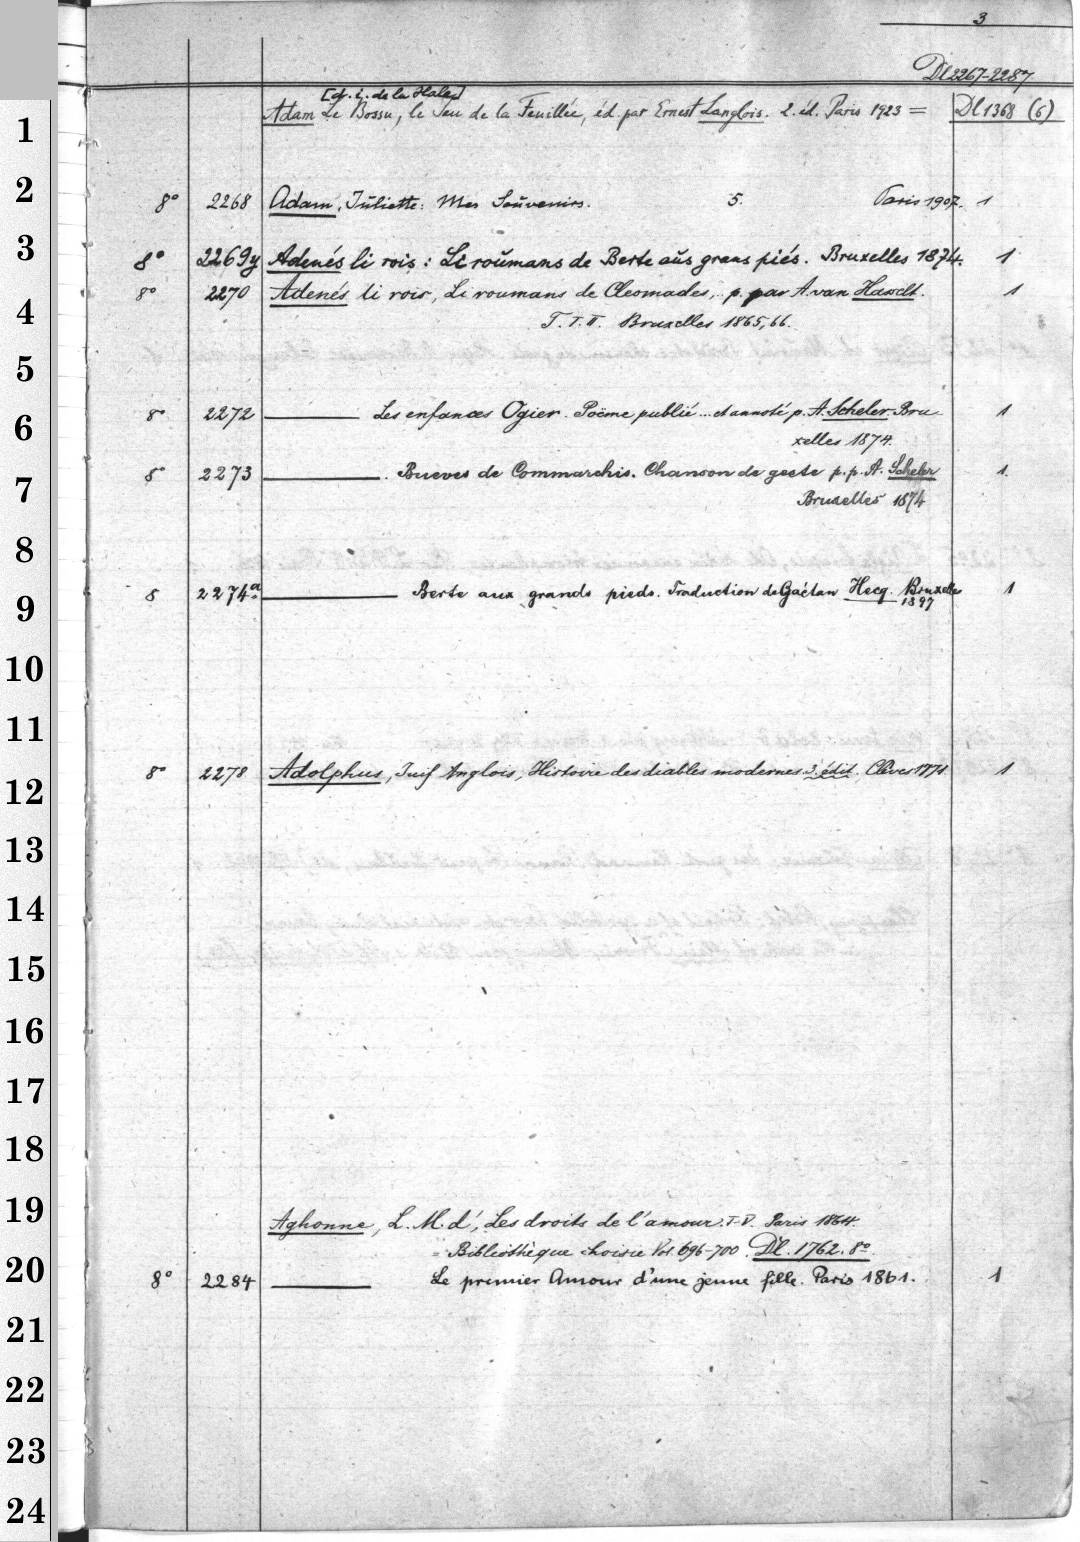 3
Dl 2267-2287
[d. i. de la Hale]
1 Adam Le Bossu, le Jeu de la Feuillée, éd. par Ernest Langlois. 2. éd. Paris 1923 = Dl 1368 (6)
2 8° 2268 Adam, Juliette: Mes Souvenirs. 5. Paris 1907. 1
3 8° 2269y Adenés li rois: Li roŭmans de Berte aŭs grans piés. Bruxelles 1874. 1
8° 2270 Adenés li rois, Li roumans de Cleomades, p. par A. van Hasselt. 1
4 T. I. II. Bruxelles 1865,66.
5
6 8° 2272 Les enfances Ogier. Poëme publié... et annoté p. A. Scheler. Bru- 1
xelles 1874.
7 8° 2273 . Bueves de Commarchis. Chanson de geste p. p. A. Scheler 1.
Bruxelles 1874
8
9 8 2274a Berte aux grands pieds. Traduction de Gaétan Hecq. Bruxelles 1
1897
10
11
12 8° 2278 Adolphus, Juif Anglois, Histoire des diables modernes 3. édit. Clèves 1771. 1
13
14
15
16
17
18
19 Aghonne, L. M. d', Les droits de l'amour. I-V. Paris 1864.
= Bibliothèque choisie Vol. 696-700. Dl. 1762. 8°.
20 8° 2284 Le premier Amour d'une jeune fille. Paris 1861. 1
21
22
23
24